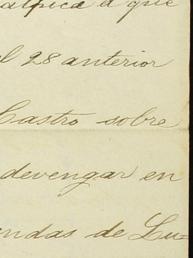 que
l 28 anterior
Castro sobre
devengar en
ndas de Lu=